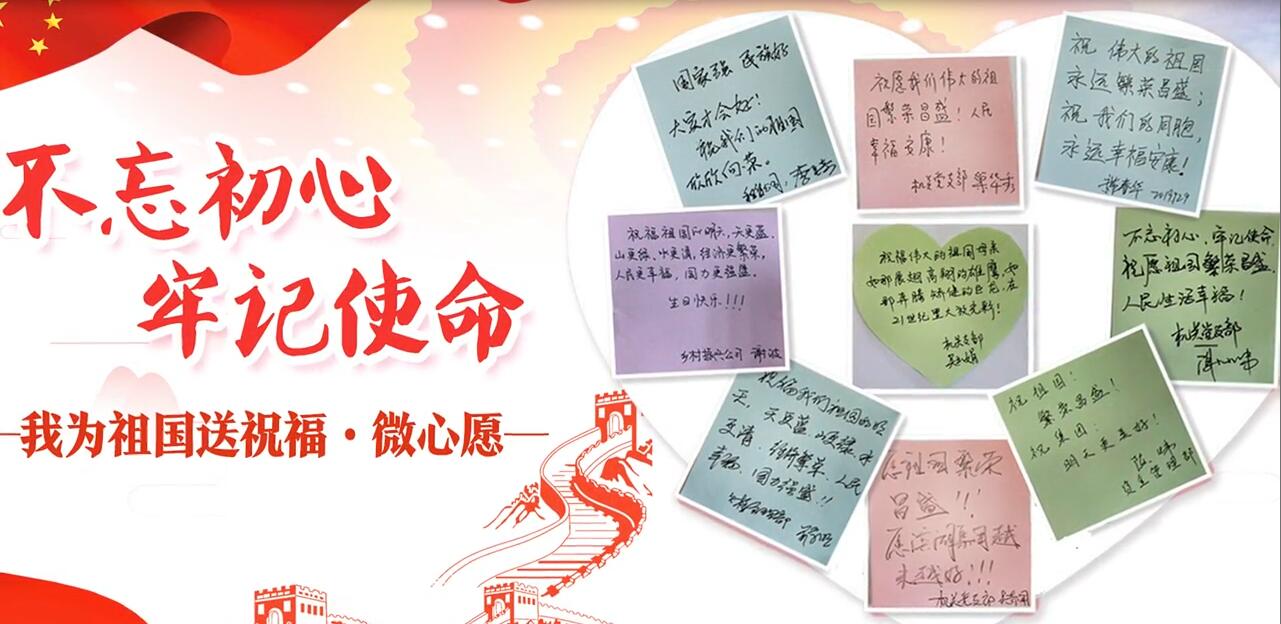 不忘初心
牢记使命
我为祖国送祝福·微心愿
国家强 民族好
大家才会好！
祝我们的祖国
欣欣向荣。
祝愿我们伟大的祖
国繁荣昌盛！人民
幸福安康！
机关党支部
祝 伟大的祖国
永远繁荣昌盛；
祝 我们的同胞，
永远幸福安康！
祝福祖国的明天，天更蓝、
山更绿、水更清，经济更繁荣，
人民更幸福，国力更强盛。
生日快乐！！！
乡村振兴公司 谢波
祝福伟大的祖国母亲
如那展翅高翔的雄鹰，如
那奔腾矫健的巨龙，在
21世纪里大放光彩！
机关支部
不忘初心、牢记使命
祝愿祖国繁荣昌盛
人民生活幸福！
机关党支部
祝福我们祖国的明
天，天更蓝 山更绿 水
更清，经济繁荣，人民
幸福，国力强盛！！
愿祖国繁荣
昌盛！！
愿滨湖集团越
来越好！！！
机关党支部
祝祖国：
繁荣昌盛！
祝集团：
明天更美好！
资产管理部